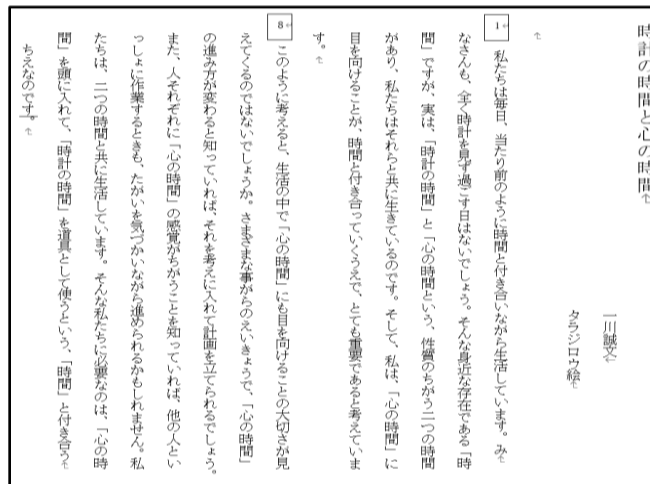 時計の時間と心の時間
一川誠文
タラジロウ絵
1
私たちは毎日、当たり前のように時間と付き合いながら生活しています。み
なさんも、全く時計を見ず過ごす日はないでしょう。そんな身近な存在である「時
間」ですが、実は、「時計の時間」と「心の時間という、性質のちがう二つの時間
があり、私たちはそれらと共に生きているのです。そして、私は、「心の時間」に
目を向けることが、時間と付き合っていくうえで、とても重要であると考えていま
す。
8
このように考えると、生活の中で「心の時間」にも目を向けることの大切さが見
えてくるのではないでしょうか。さまざまな事がらのえいきょうで、「心の時間」
の進み方が変わると知っていれば、それを考えに入れて計画を立てられるでしょう。
また、人それぞれに「心の時間」の感覚がちがうことを知っていれば、他の人とい
っしょに作業するときも、たがいを気づかいながら進められるかもしれません。私
たちは、二つの時間と共に生活しています。そんな私たちに必要なのは、「心の時
間」を頭に入れて、「時計の時間」を道具として使うという、「時間」と付き合う
ちえなのです。